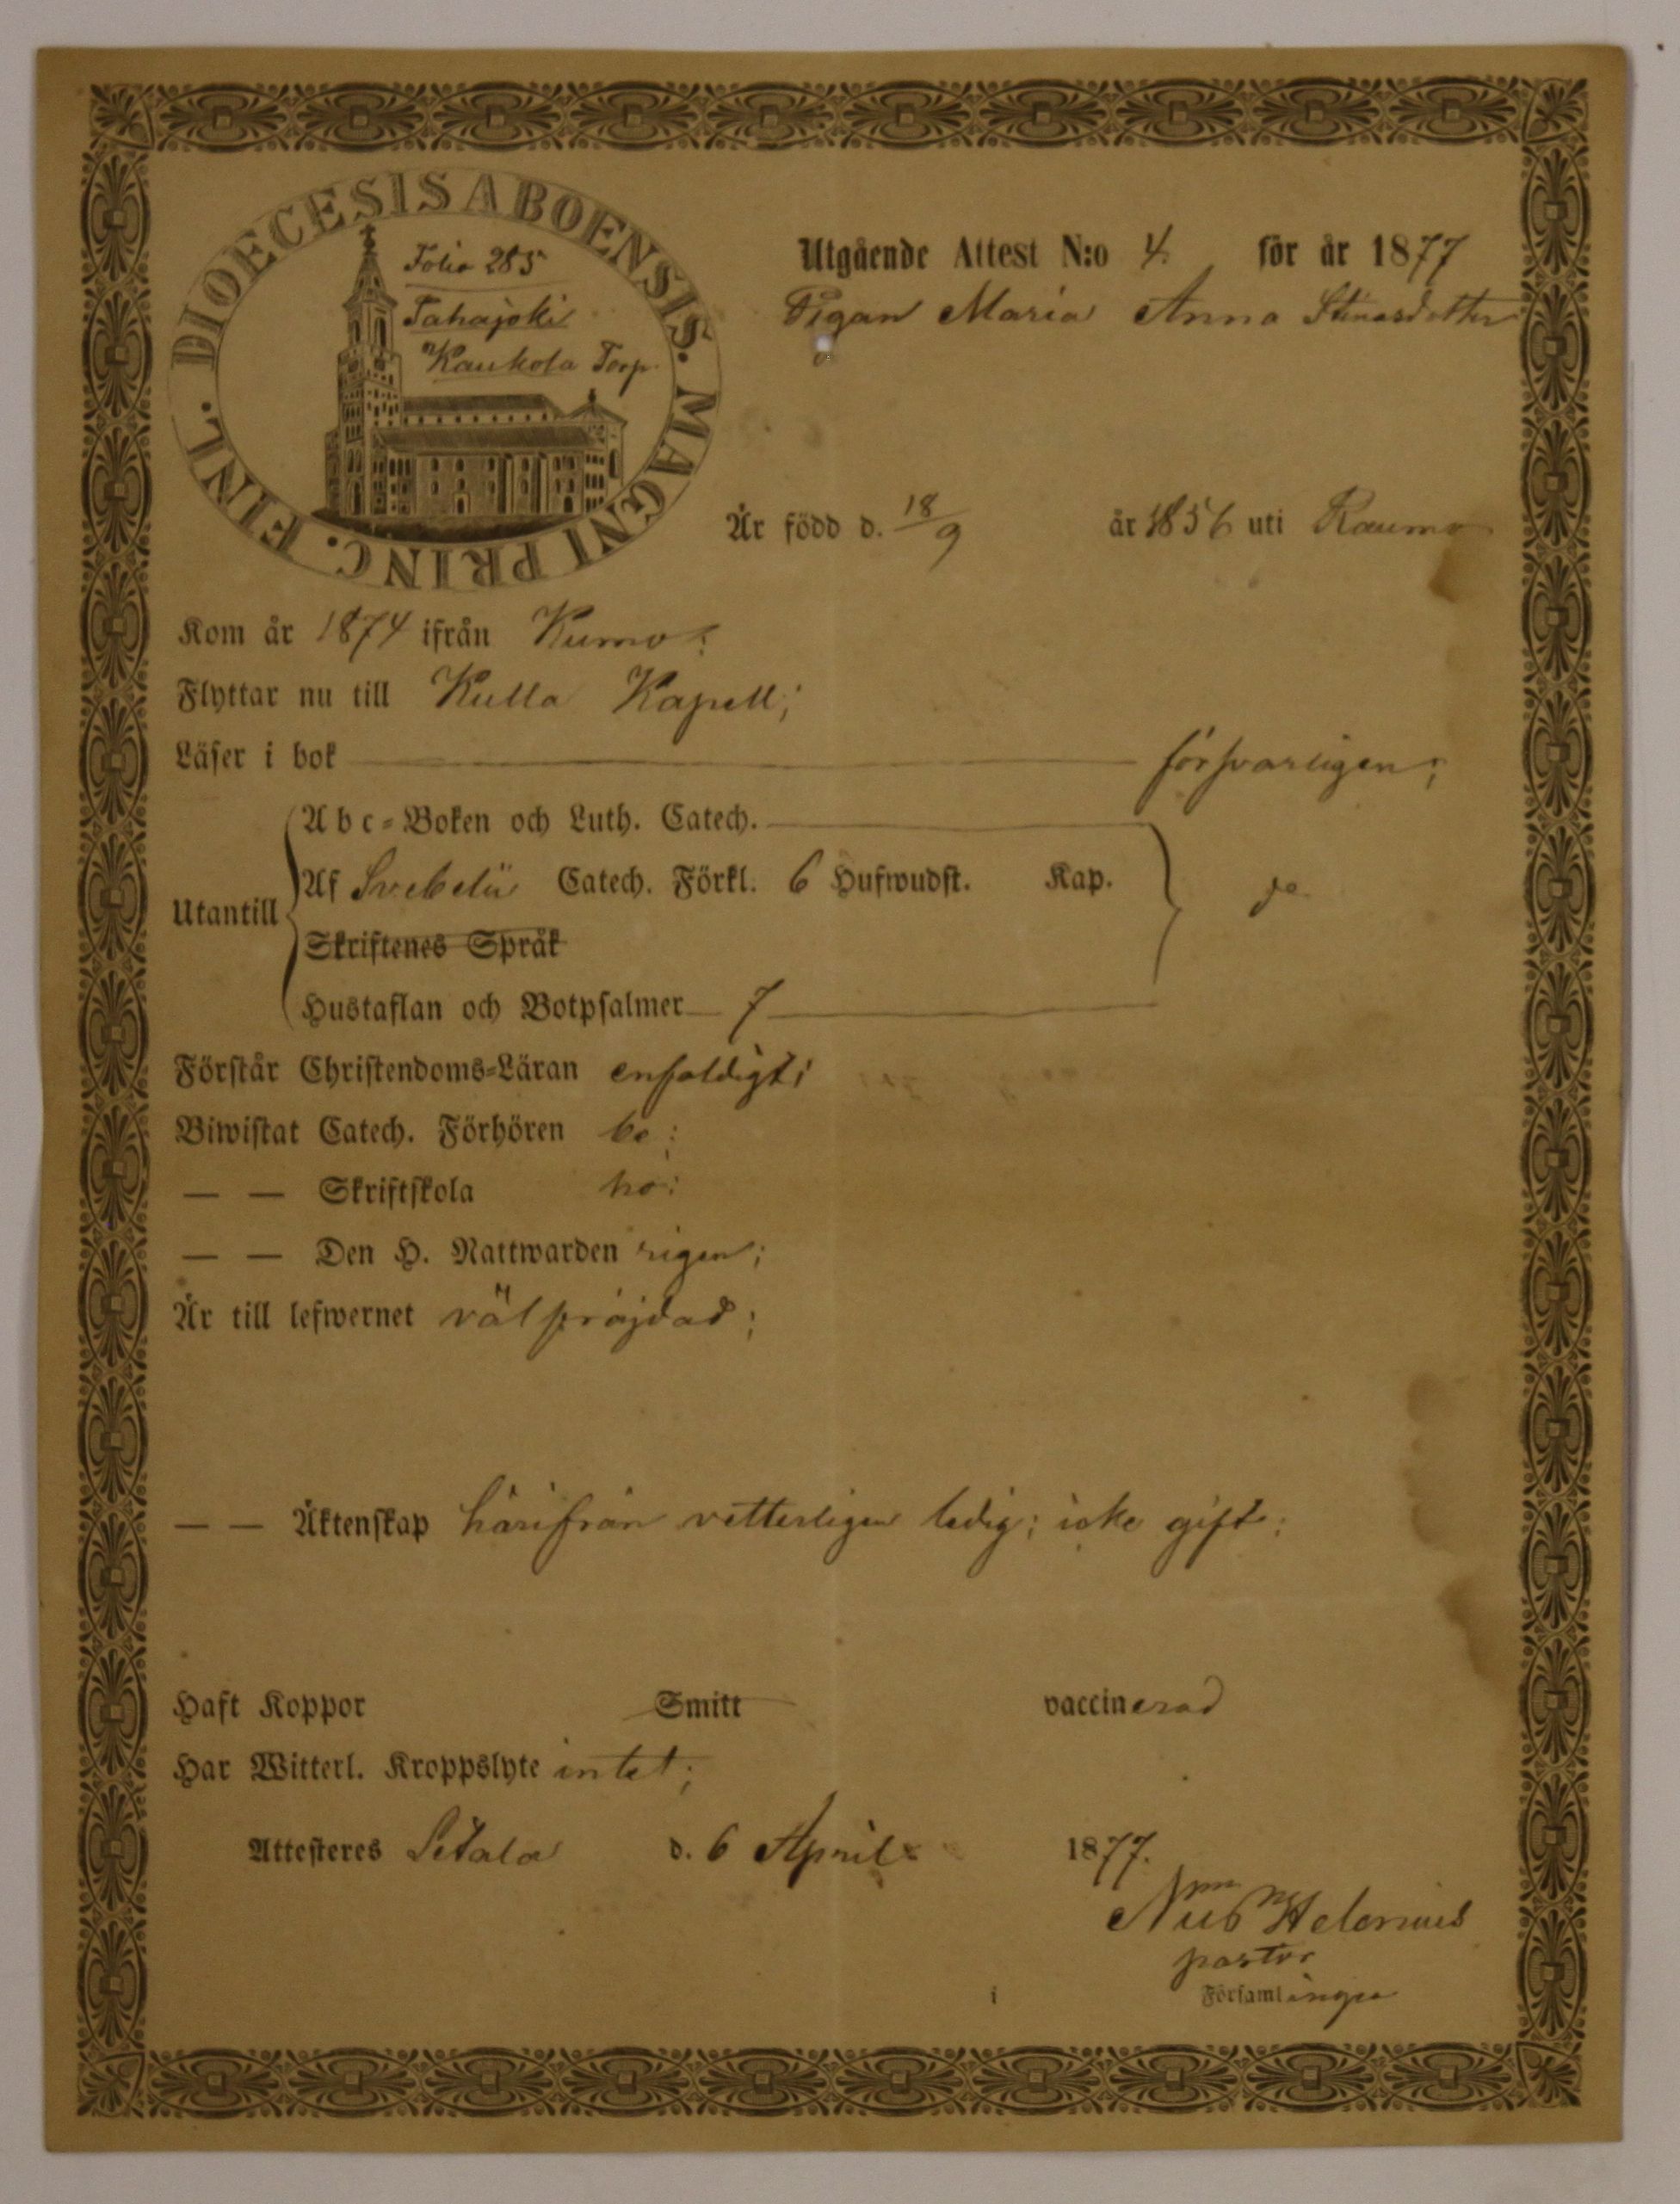 DIOECESIS ABOENSIS. MAGNI PRINC. FINL.
Folio 285
Tahajoki
Kaukola Torp.
Utgående Attest N:o 4. för år 1877
Pigan Maria Anna Stinasdotter
Är född d. 18/9 år 1856 uti Raumo
Kom år 1874 ifrån Kumo;
Flyttar nu till Kulla Kapell;
Läser i bok försvarligen;
Abc-Boken och Luth. Catech.
Utantill
Af Svebelii Catech. Förkl. 6 Hufwudst. Kap. ja
Skriftenes Språk
Hustaflan och Botpsalmer 7
Förstår Christendoms-Läran enfaldigt;
Biwistat Catech. Förhören be:
— — Skriftskola hö:
— — Den H. Nattwarden rigen;
Är till lefwernet välfräjdad;
— — Äktenskap härifrån vetterligen ledig; icke gift;
Haft Koppor Smitt vaccinerad
Har Witterl. Kroppslyte intet;
Attesteres Letala d. 6 April 1877.
Helenius
pastor
i Församlingen